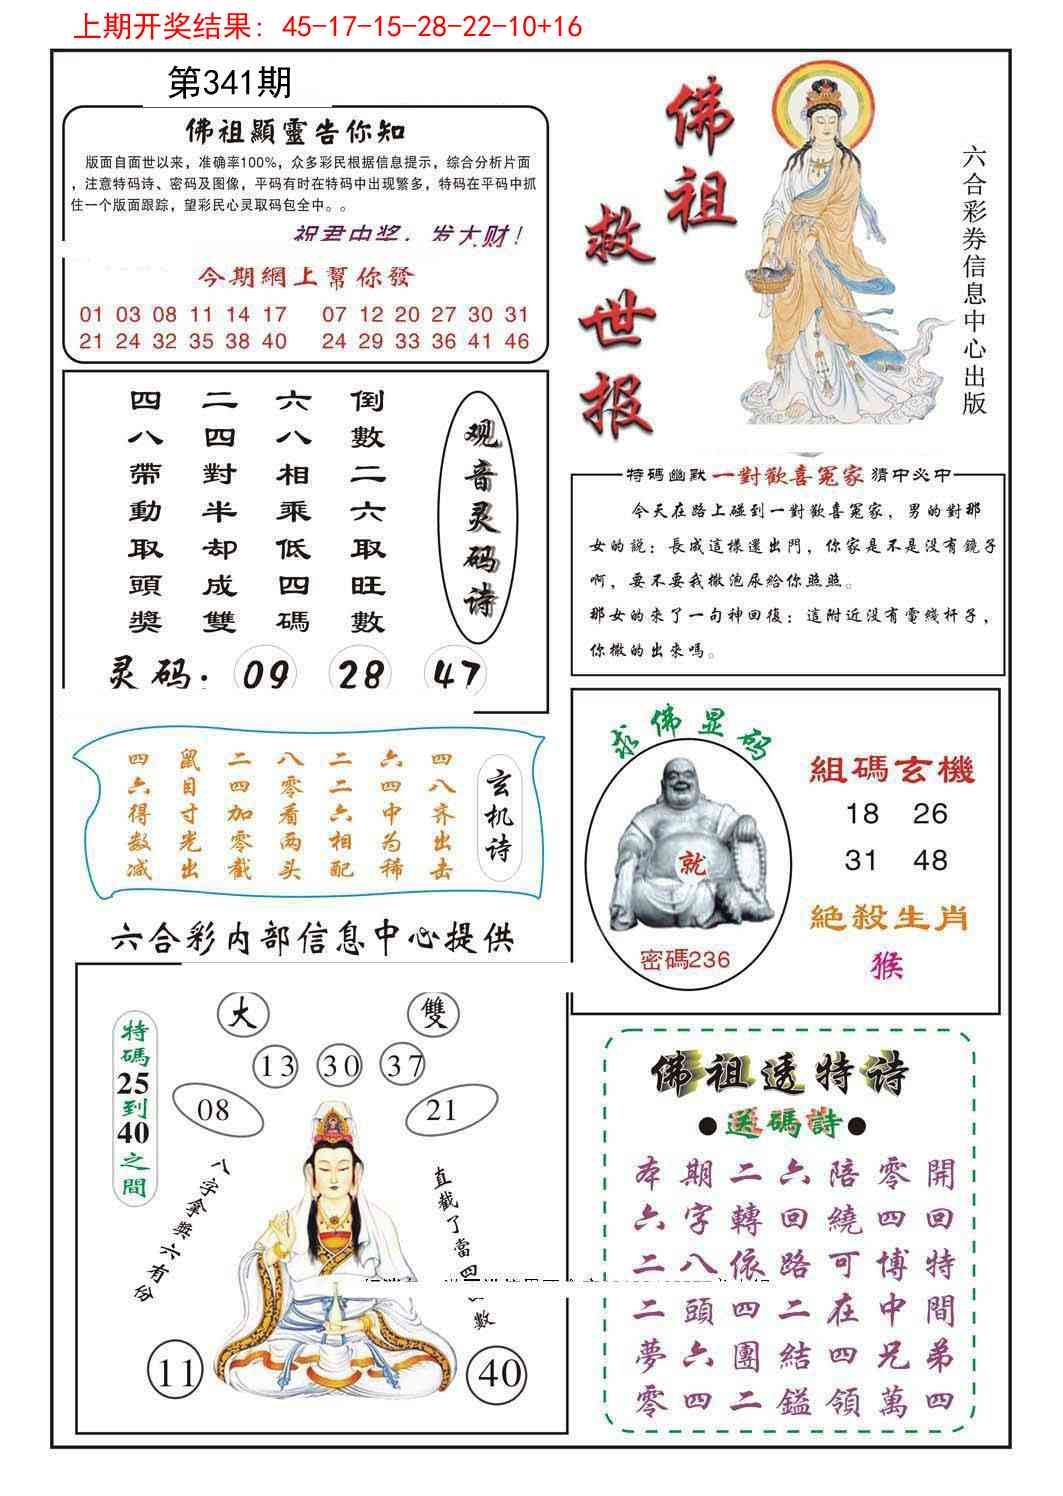 上期开奖结果: 45-17-15-28-22-10+16
第341期
佛祖顯靈告你知
版面自面世以来，准确率100%，众多彩民根据信息提示，综合分析片面
，注意特码诗、密码及图像，平码有时在特码中出现繁多，特码在平码中抓
住一个版面跟踪，望彩民心灵取码包全中。。
祝君中奖，发大财！
今期網上幫你發
01 03 08 11 14 17 07 12 20 27 30 31
21 24 32 35 38 40 24 29 33 36 41 46
佛祖
救世报
六合彩券信息中心出版
观音灵码诗
倒數二六取旺數
六八相乘低四碼
二四對半却成雙
四八帶動取頭獎
灵码: 09 28 47
特碼幽默 一對歡喜冤家 猜中必中
今天在路上碰到一對歡喜冤家，男的對那
女的說：長成這樣還出門，你家是不是没有鏡子
啊，要不要我撒泡尿給你照照。
那女的來了一句神回復：這附近没有電线杆子，
你撒的出來嗎。
玄机诗
四八齐出击
六四中为稀
二二六相配
八零看两头
二四加零截
鼠目寸光出
四六得数减
求佛显码
就
密碼236
組碼玄機
18 26
31 48
絕殺生肖
猴
六合彩内部信息中心提供
特碼25到40之間
大 雙
13 30 37
08 21
八字拿獎六有份
直截了當四
數
11 40
佛祖透特诗
●送碼詩●
本期二六陪零開
六字轉回繞四回
二八依路可博特
二頭四二在中間
夢六團結四兄弟
零四二鎰領萬四